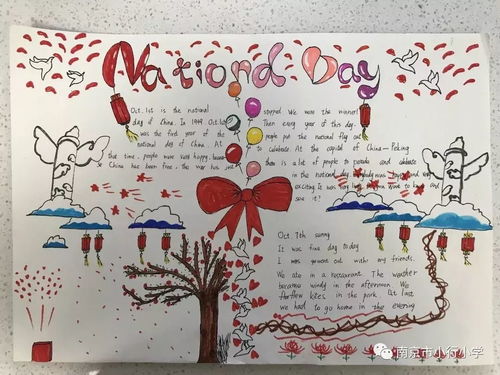 National Day
Oct. 1st is the national
day of China. In 1949 Oct. 1st
was the first year of the
national day of China. At
that time, people were very happy, because
China has been free. The war has just
stopped We were the winner!
Then every year of this day.
people put the national flag out
to celebrate. At the capital of China—Peking
there is a lot of people to parade and celebrate
in the national day
exciting It was very Want to have and
see it?
Oct 7th sunny
It was fine day today
I was out with my friends.
We ate in a restaurant. The weather
became windy in the afternoon. We
flew kites in the park. At last
we had to go home in the evening
南京市小行小学